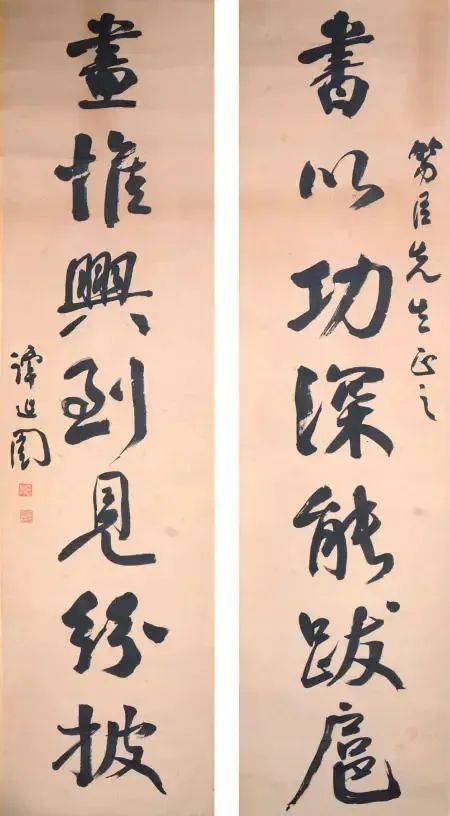 書以功深能跋扈
臣先生正之
畫惟興到見紛披
譚延闓